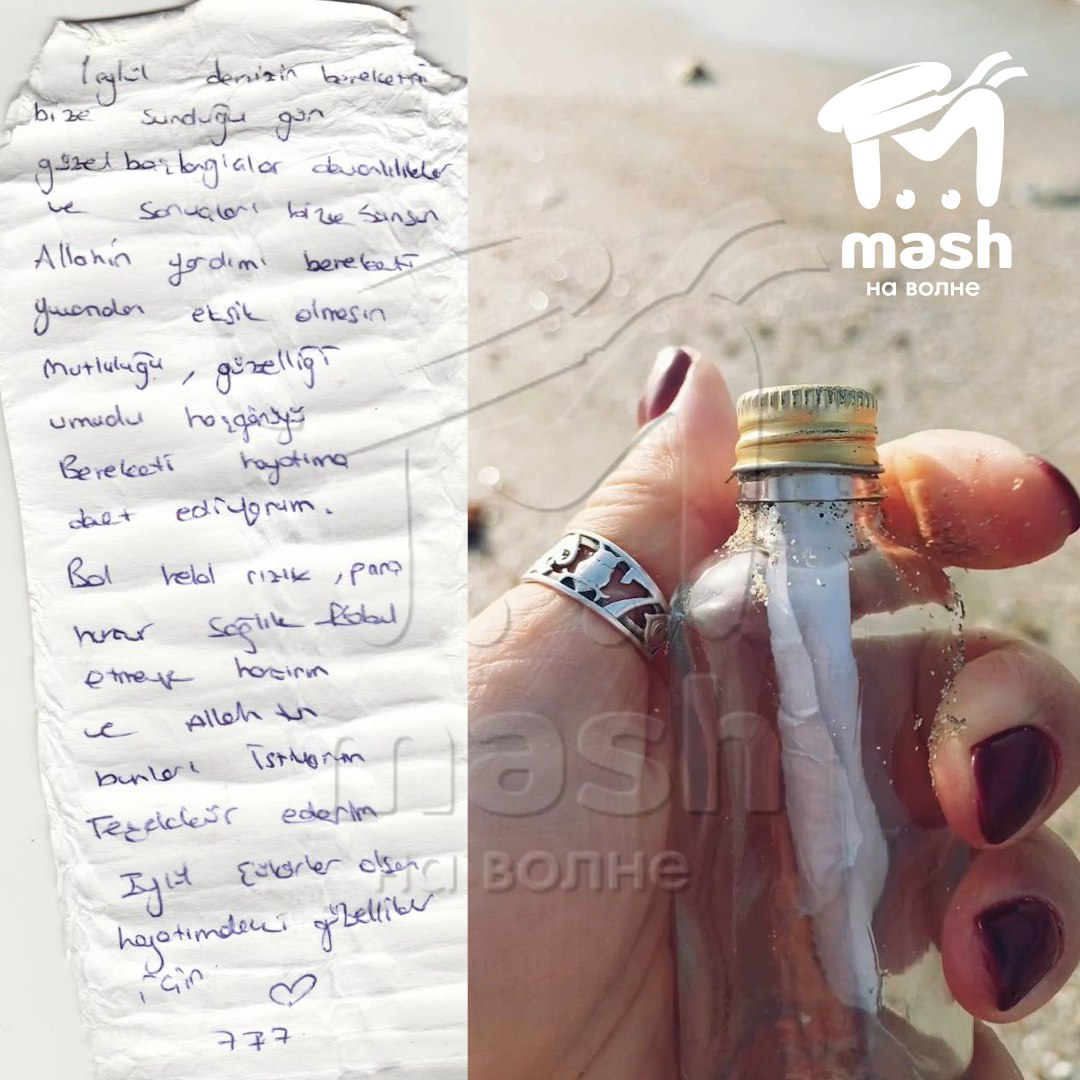 1 eylül denizin bereketini
bize sunduğu gün
güzel başlangıclar
ve sonuçları bize sunsun
Allahin yardımı bereketi
yuvandan eksik olmasın
mutluluğu, güzelliği
umudu hoşgörüyü
Bereketi hayatıma
davet ediyorum.
Bol helal rızık, para
huzur sağlık kabul
etmeye hazırım
ve Allah tan
bunları istiyorum
Teşekkür ederim
Eylül Şükürler olsun
hayatımdaki güzellikler
için
777
mash
на волне
mash
на волне